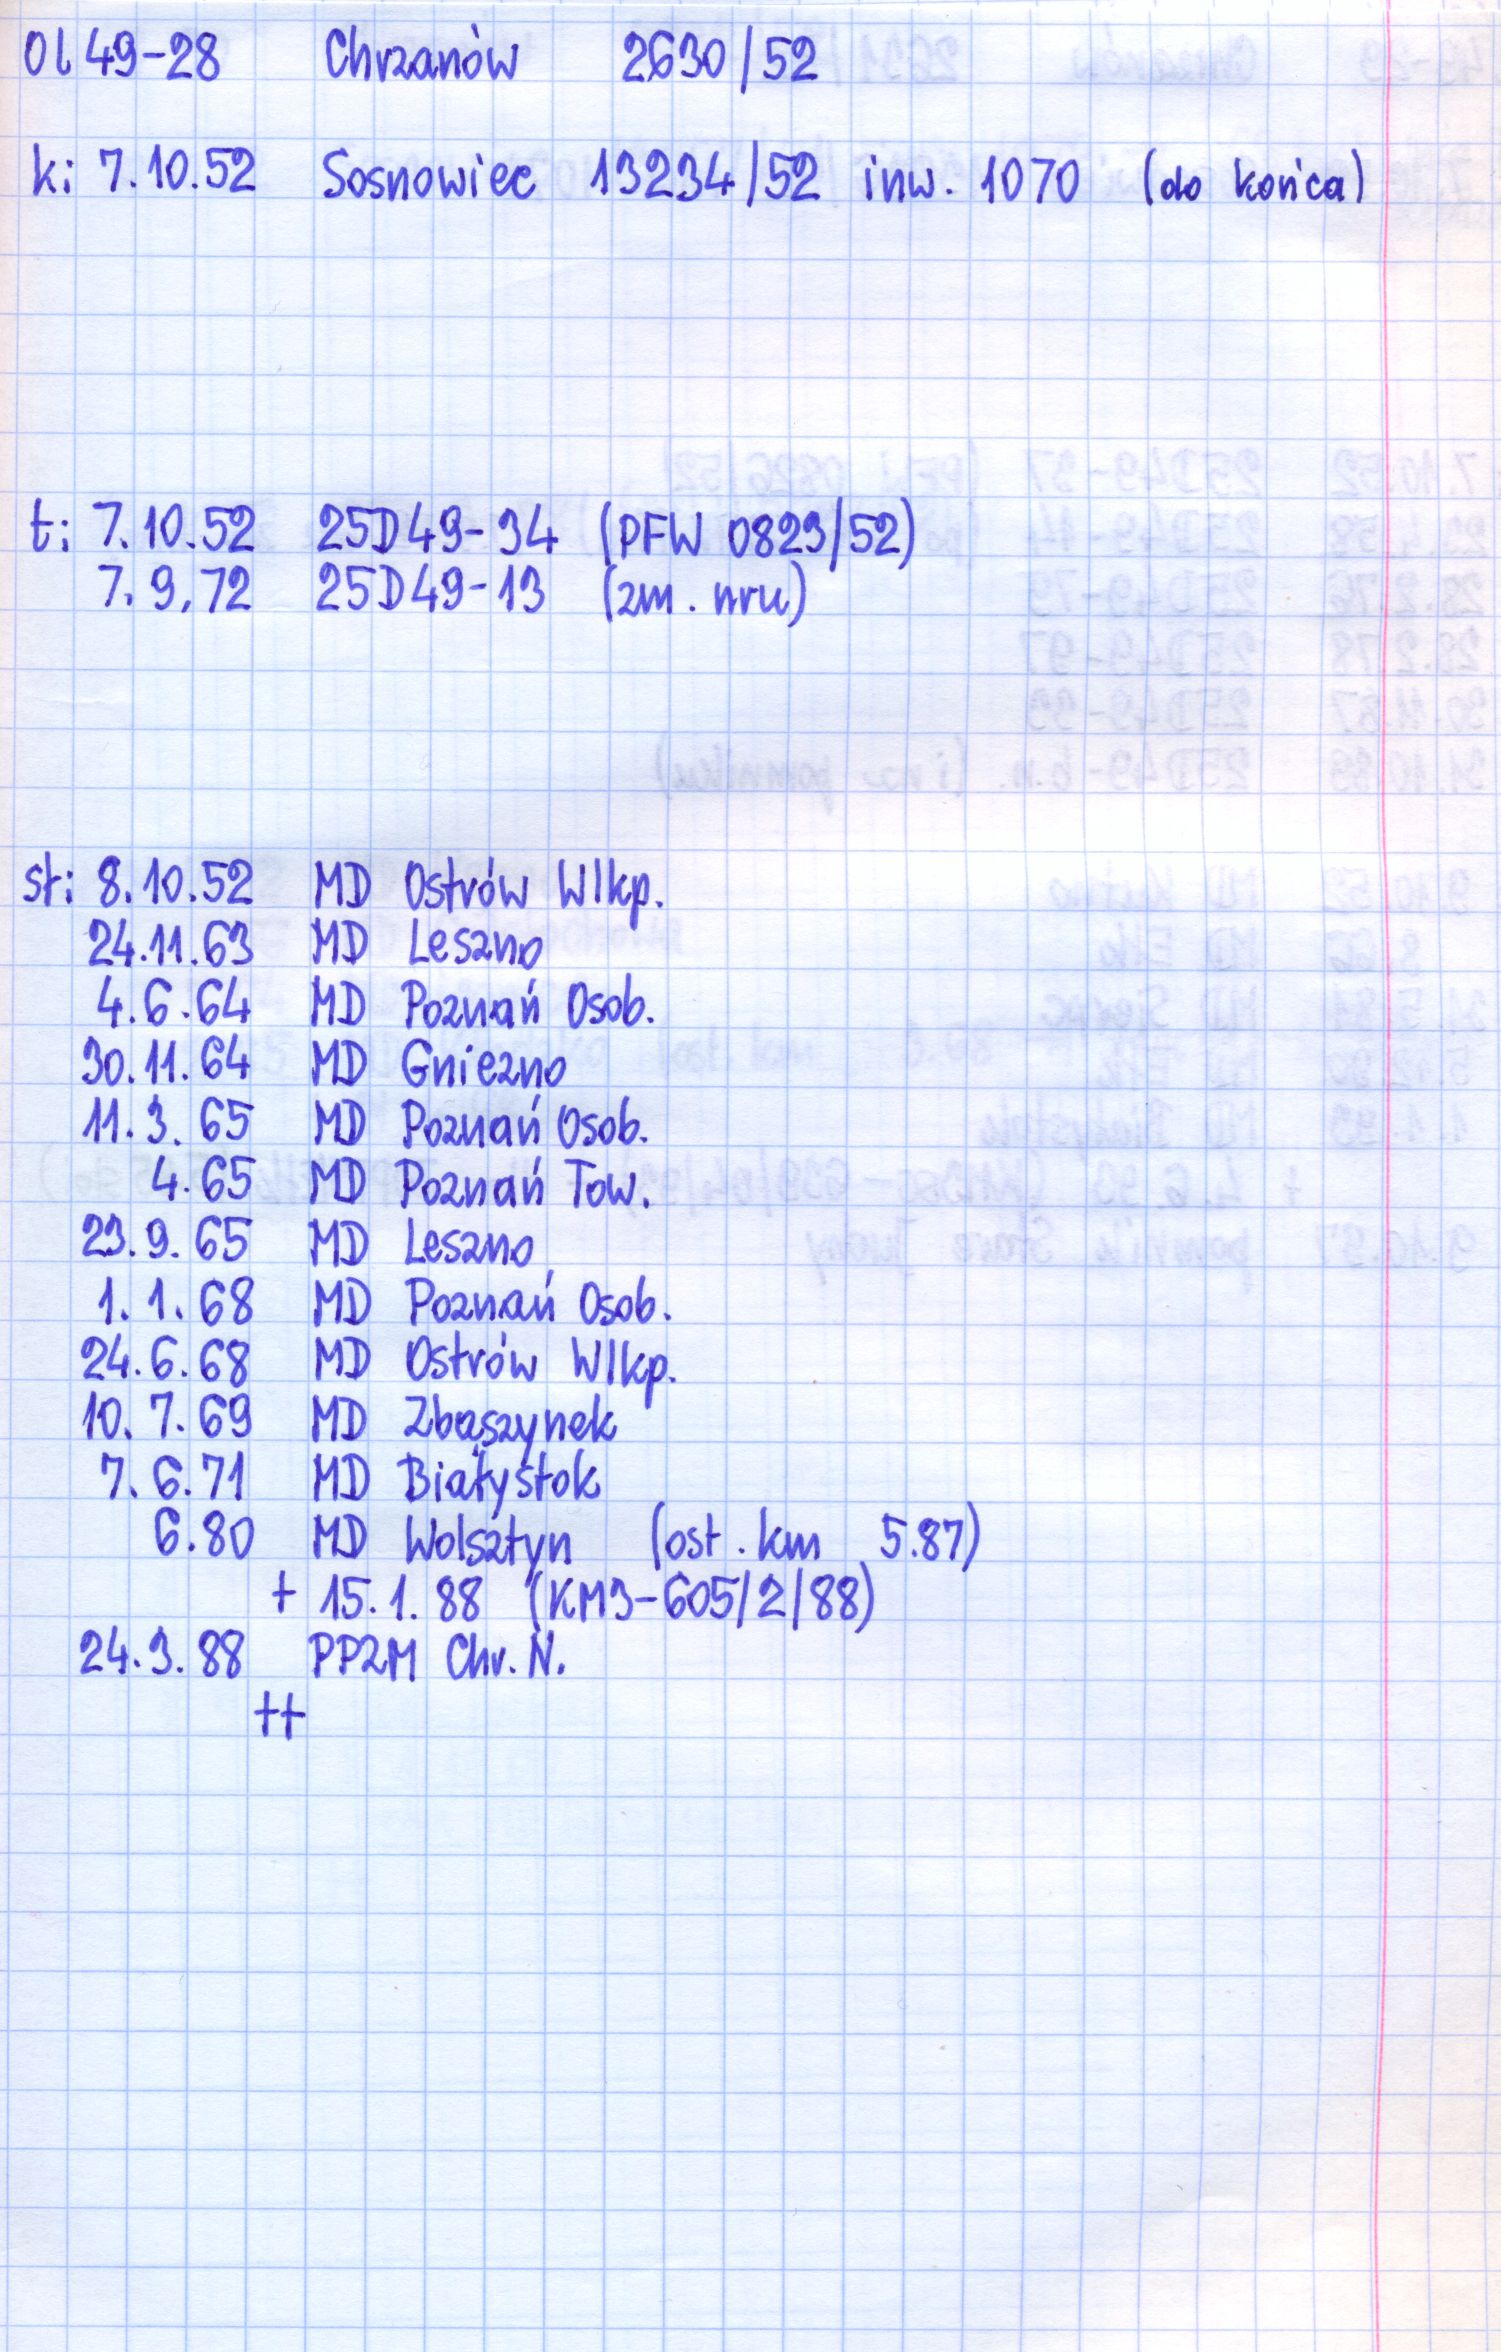 Ol 49-28 Chrzanów 2630/52
k: 7.10.52 Sosnowiec 13234/52 inw. 1070 (do końca)
t: 7.10.52 25D49-34 (PFW 0823/52)
7.9.72 25D49-13 (zm. nru)
st: 8.10.52 MD Ostrów Wlkp.
24.11.63 MD Leszno
4.6.64 MD Poznań Osob.
30.11.64 MD Gniezno
11.3.65 MD Poznań Osob.
4.65 MD Poznań Tow.
23.9.65 MD Leszno
1.1.68 MD Poznań Osob.
24.6.68 MD Ostrów Wlkp.
10.7.69 MD Zbąszynek
7.6.71 MD Białystok
6.80 MD Wolsztyn (ost. km 5.87)
+ 15.1.88 (KM3-605/2/88)
24.3.88 PPZM Chr. N.
++